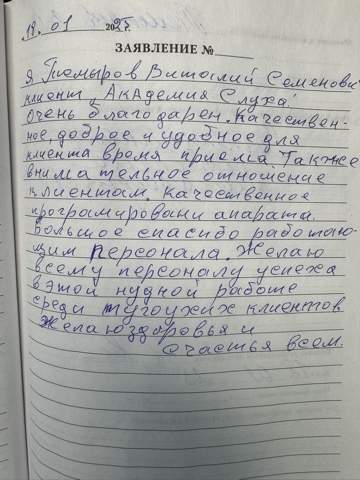 19. 01 2025г.
ЗАЯВЛЕНИЕ №
Я Тюмыров Виталий Семенови
клиент „Академия Слуха"
Очень благодарен. Качествен-
ное, доброе и удобное для
клиента время приема. Также
внимательное отношение
клиентам, качественное
програмировани апарата.
Большое спасибо работаю-
щим персонала. Желаю
всему персоналу успеха
в этой нудной работе
среди тугоухих клиентов
Желаю здоровья и
счастья всем.